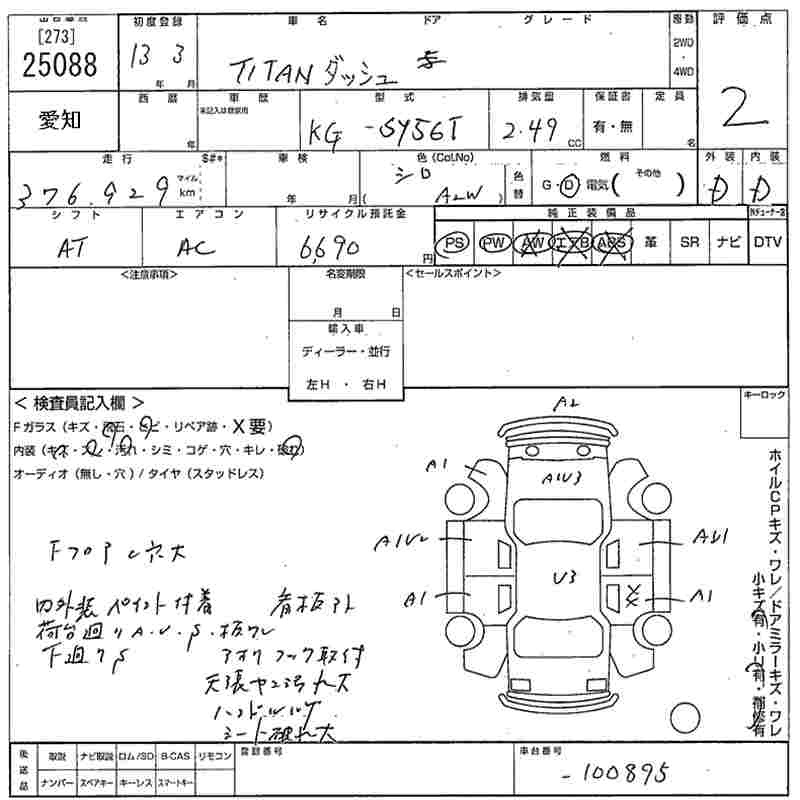 [273]
25088
愛知
初度登録
13 3
年 月
車名 ドア グレード
TITAN ダッシュ
駆動
2WD
・
4WD
評価点
2
西暦
年
車歴
未記入は自家用
型式
KG -SY56T
排気量
2.49
CC
保証書
有・無
定員
名
走行 S#*
376,929
マイル
km
車検
年 月
色 (Col.No)
シロ
( A2W )
色替
燃料
G・D 電気 ( その他 )
外装
D
内装
D
シフト
AT
エアコン
AC
リサイクル預託金
6,690
円
純正装備品
PS PW AW エアB ABS 革 SR ナビ
DTV
<注意事項>
名変期限
月 日
輸入車
ディーラー・並行
左H ・ 右H
<セールスポイント>
< 検査員記入欄 >
Fガラス (キズ・飛石・ヒビ・リペア跡・X要)
内装 (キズ・スレ・汚れ・シミ・コゲ・穴・キレ・破れ)
オーディオ (無し・穴) / タイヤ (スタッドレス)
キーロック
A2
A1
A1U3
A1U2
U3
A1
XX
A1
ホイルCPキズ・ワレ/ドアミラーキズ・ワレ
小キズ有・小U有・補修有
Fフロア 穴大
内外装 ペイント付着 看板アト
荷台廻り A.U.S.板ワレ
下廻りS アオリ フック取付
天張ヤニ汚れ大
ハンドルハゲ
シート破れ大
後送品
取説 ナビ取説 ロム/SD B-CAS リモコン
ナンバー スペアキー キーレス スマートキー
登録番号
車台番号
-100895